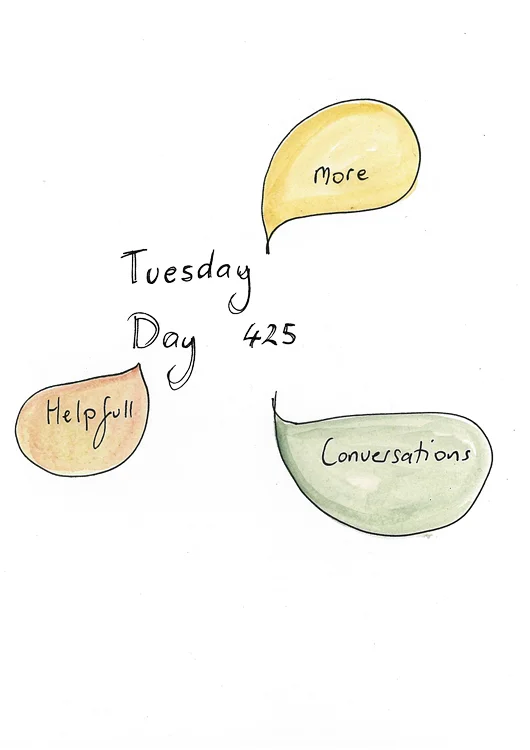 More
Tuesday
Day 425
Helpfull
Conversations